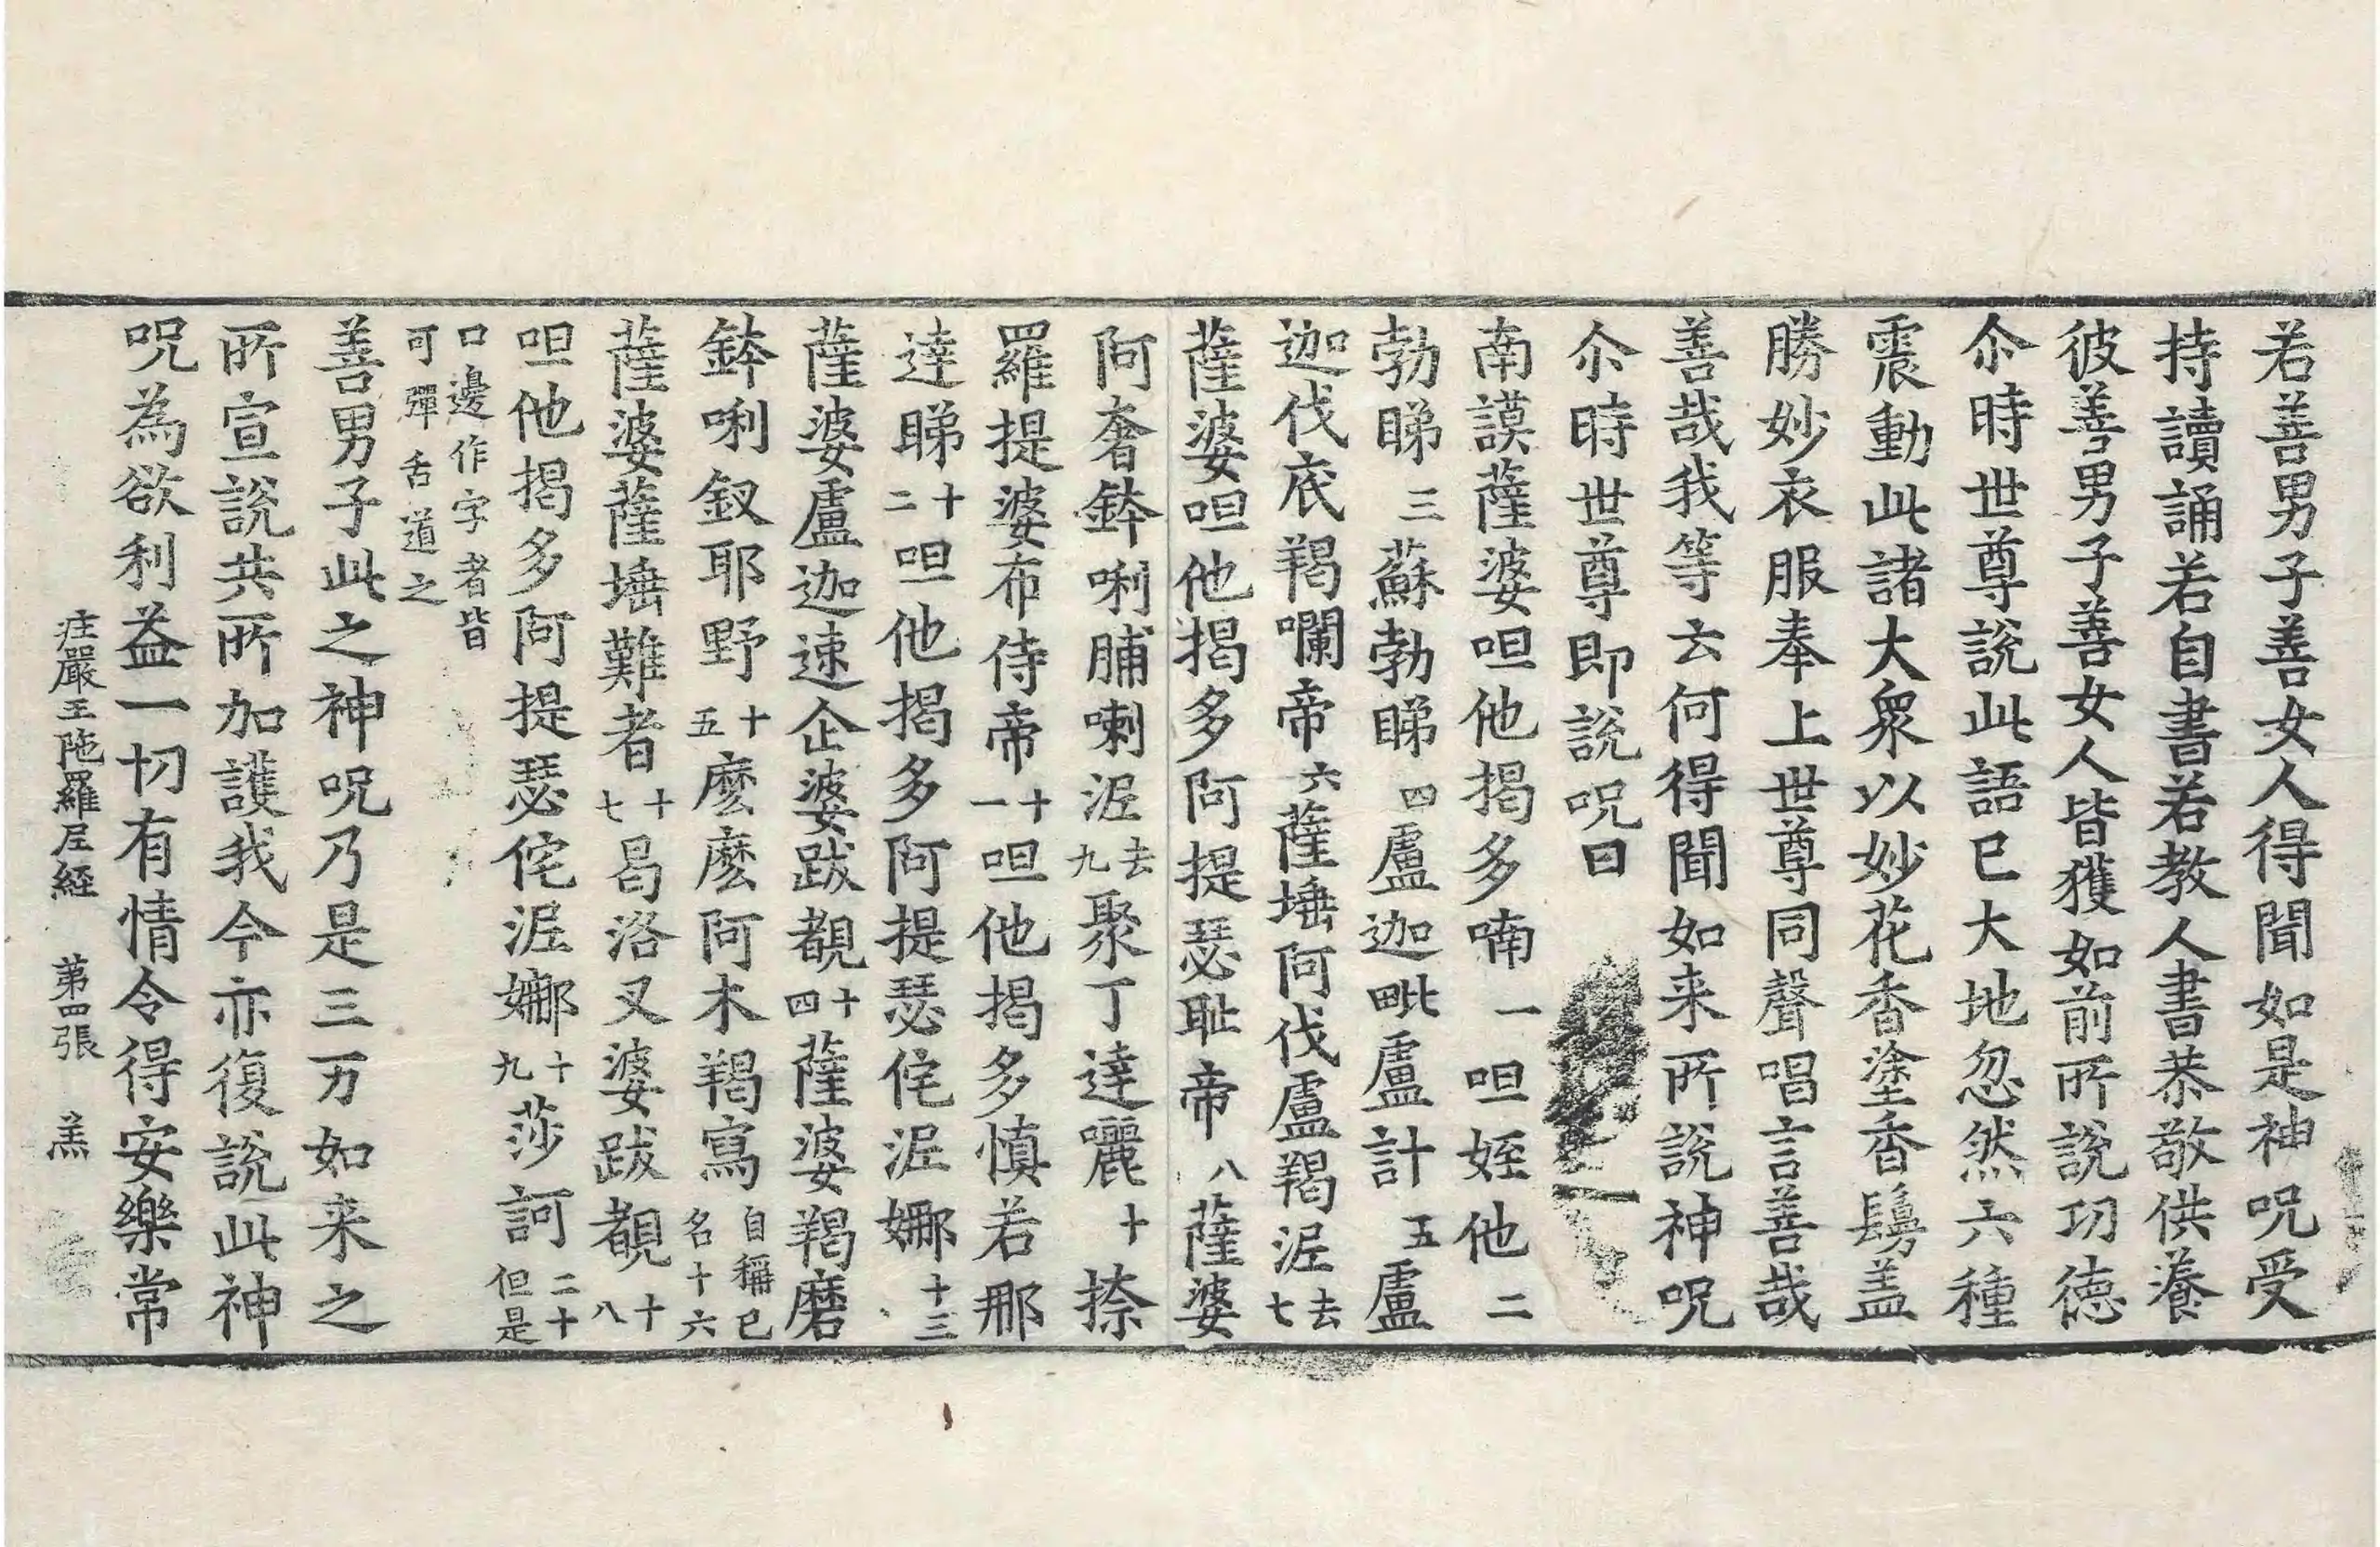 若善男子善女人得聞如是神呪受
持讀誦若自書若教人書恭敬供養
彼善男子善女人皆獲如前所說功德
尒時世尊說此語已大地忽然六種
震動此諸大衆以妙花香塗香鬘盖
勝妙衣服奉上世尊同聲唱言善哉
善哉我等云何得聞如来所說神呪
尒時世尊即說呪曰
南謨薩婆呾他揭多喃一呾姪他二
勃睇三蘇勃睇四盧迦毗盧計五盧
迦伐底羯囒帝六薩埵阿伐盧羯泥去七
薩婆呾他揭多阿提瑟耻帝八薩婆
阿奢鉢唎脯喇泥去九聚丁達囇十捺
羅提婆布侍帝十一呾他揭多慎若那
達睇十二呾他揭多阿提瑟侘泥娜十三
薩婆盧迦速企婆跋覩十四薩婆羯磨
鉢唎釵耶野十五麽麽阿木羯寫自稱己名十六
薩婆薩埵難者十七曷洛叉婆跋覩十八
呾他揭多阿提瑟侘泥娜十九莎訶二十但是
口邊作字者皆
可彈舌道之
善男子此之神呪乃是三万如来之
所宣說共所加護我今亦復說此神
呪為欲利益一切有情令得安樂常
荘嚴王陁羅尼経 第四張 羔